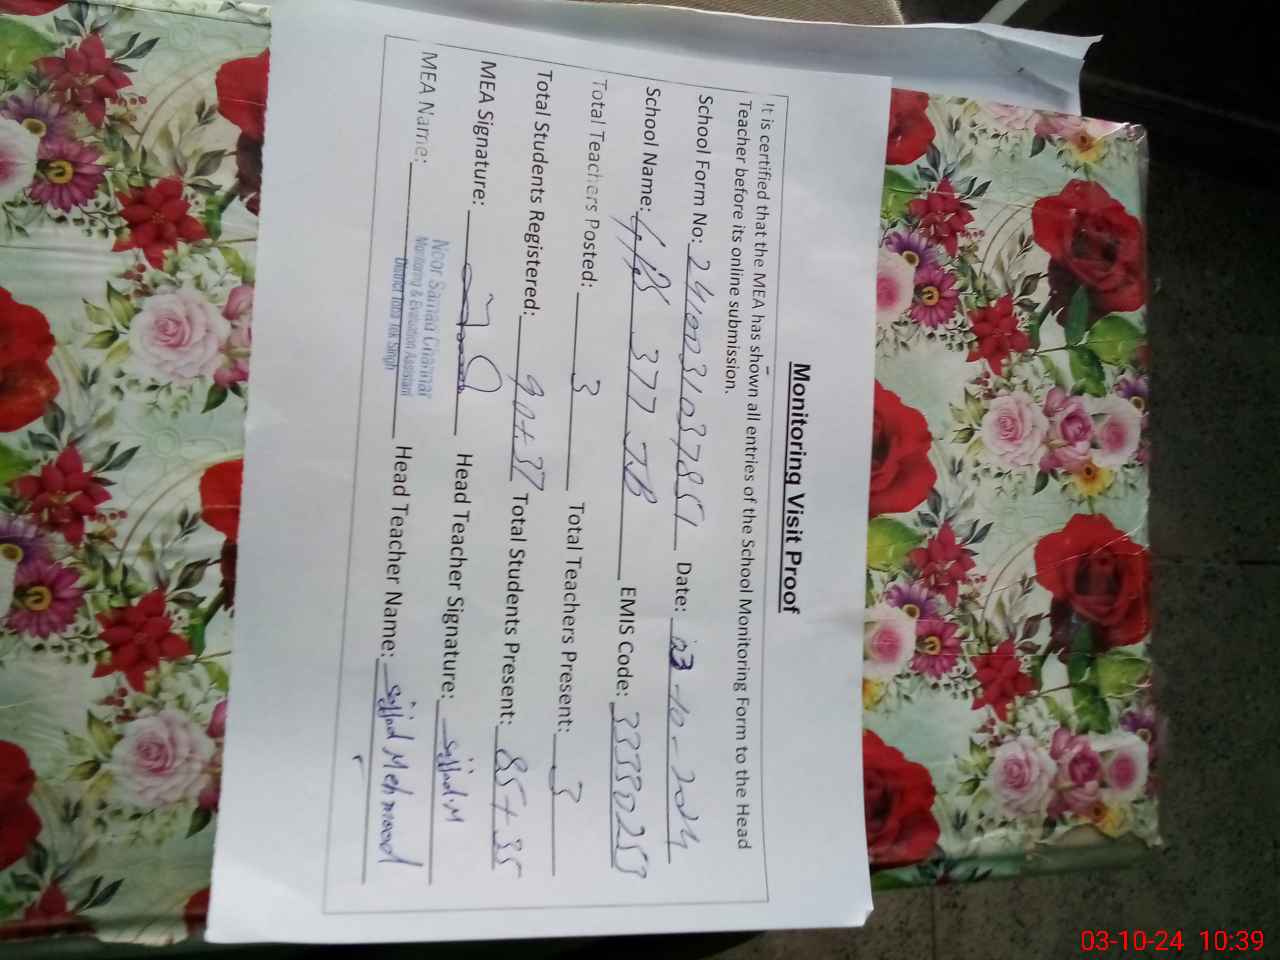 Monitoring Visit Proof
It is certified that the MEA has shown all entries of the School Monitoring Form to the Head
Teacher before its online submission.
School Form No: Date: 03-10-2024
School Name: 377 JB EMIS Code: 33380253
Total Teachers Posted: 3 Total Teachers Present: 3
Total Students Registered: 90+37 Total Students Present: 85+35
MEA Signature: Head Teacher Signature: Sajjad M
MEA Name: Head Teacher Name: Sajjad Mehmood
Noor Samad Channar
Monitoring & Evaluation Assistant
District Toba Tek Singh
03-10-24 10:39